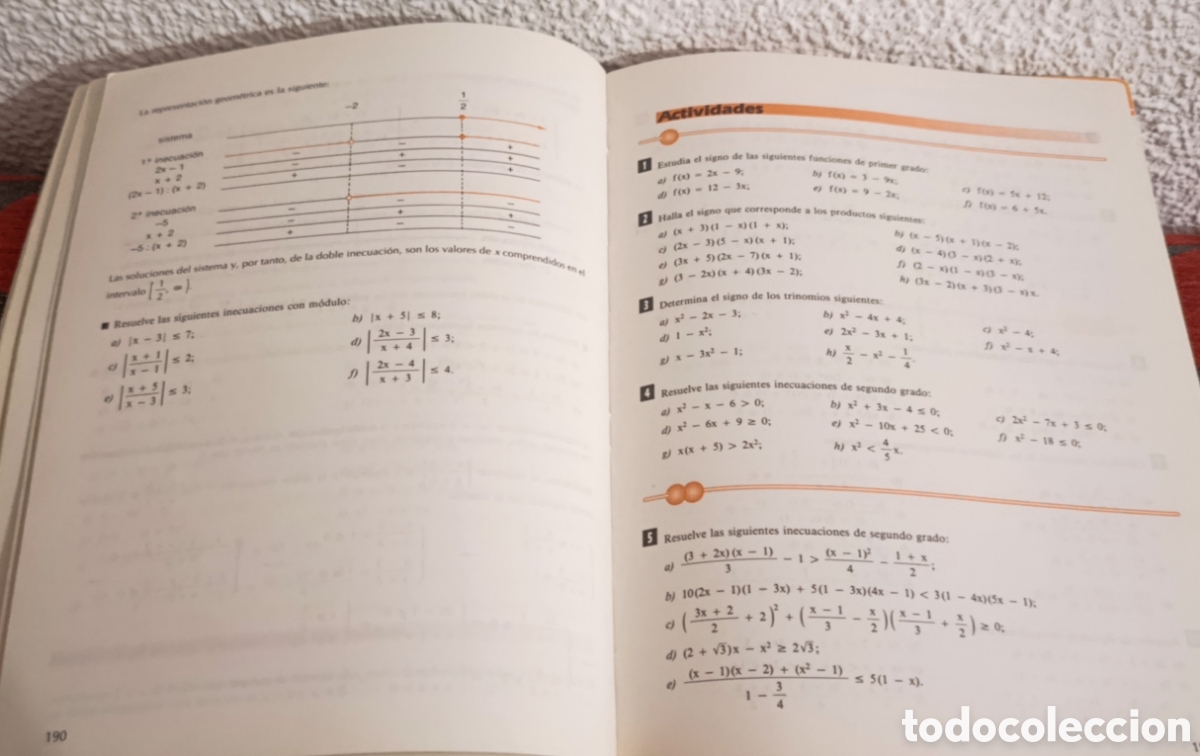 La representación geométrica es la siguiente:
-2
1/2
sistema
1ª inecuación
2x - 1
x + 2
(2x - 1) : (x + 2)
2ª inecuación
-5
x + 2
-5 : (x + 2)
Las soluciones del sistema y, por tanto, de la doble inecuación, son los valores de x comprendidos en el
intervalo [1/2, ∞).
■ Resuelve las siguientes inecuaciones con módulo:
a) |x - 3| ≤ 7; b) |x + 5| ≤ 8;
c) |(x + 1)/(x - 1)| ≤ 2; d) |(2x - 3)/(x + 4)| ≤ 3;
e) |(x + 5)/(x - 3)| ≤ 3; f) |(2x - 4)/(x + 3)| ≤ 4.
190
Actividades
1 Estudia el signo de las siguientes funciones de primer grado:
a) f(x) = 2x - 9; b) f(x) = 3 - 9x; c) f(x) = 5x + 12;
d) f(x) = 12 - 3x; e) f(x) = 9 - 2x; f) f(x) = 6 + 5x.
2 Halla el signo que corresponde a los productos siguientes:
a) (x + 3)(1 - x)(1 + x); b) (x - 5)(x + 1)(x - 2);
c) (2x - 3)(5 - x)(x + 1); d) (x - 4)(3 - x)(2 + x);
e) (3x + 5)(2x - 7)(x + 1); f) (2 - x)(1 - x)(3 - x);
g) (3 - 2x)(x + 4)(3x - 2); h) (3x - 2)(x + 3)(3 - x)x.
3 Determina el signo de los trinomios siguientes:
a) x² - 2x - 3; b) x² - 4x + 4; c) x² - 4;
d) 1 - x²; e) 2x² - 3x + 1; f) x² - x + 4;
g) x - 3x² - 1; h) x/2 - x² - 1/4.
4 Resuelve las siguientes inecuaciones de segundo grado:
a) x² - x - 6 > 0; b) x² + 3x - 4 ≤ 0; c) 2x² - 7x + 3 ≤ 0;
d) x² - 6x + 9 ≥ 0; e) x² - 10x + 25 < 0; f) x² - 18 ≤ 0;
g) x(x + 5) > 2x²; h) x² < 4/5 x.
5 Resuelve las siguientes inecuaciones de segundo grado:
a) (3 + 2x)(x - 1)/3 - 1 > (x - 1)²/4 - (1 + x)/2;
b) 10(2x - 1)(1 - 3x) + 5(1 - 3x)(4x - 1) < 3(1 - 4x)(5x - 1);
c) ((3x + 2)/2 + 2)² + ((x - 1)/3 - x/2)((x - 1)/3 + x/2) ≥ 0;
d) (2 + √3)x - x² ≥ 2√3;
e) ((x - 1)(x - 2) + (x² - 1))/(1 - 3/4) ≤ 5(1 - x).
todocoleccion